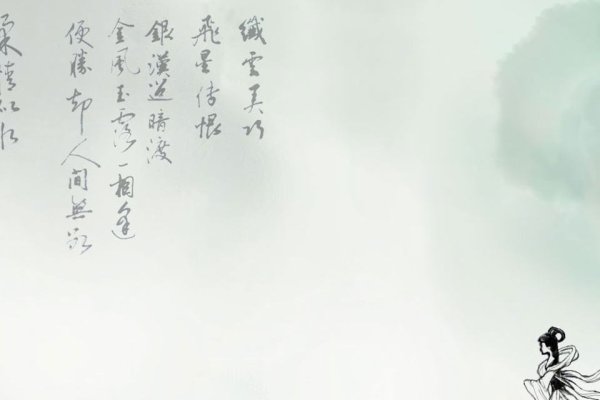 纖雲弄巧
飛星傳恨
銀漢迢暗渡
金風玉露一相逢
便勝却人間無數
柔情似水